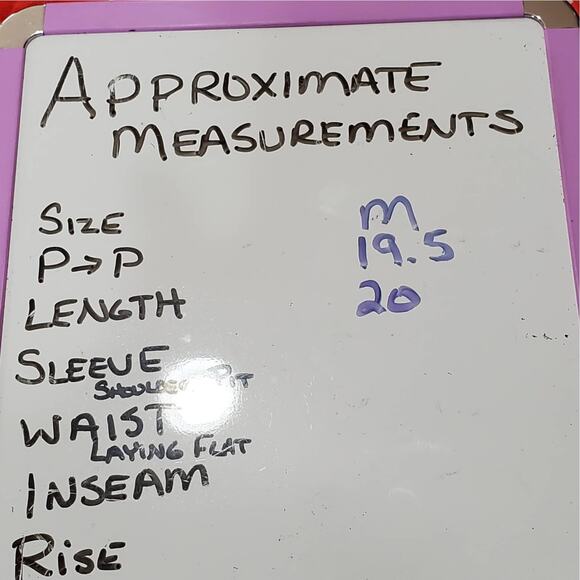 APPROXIMATE
MEASUREMENTS
SIZE M
P→P 19.5
LENGTH 20
SLEEVE
WAIST
LAYING FLAT
INSEAM
RISE